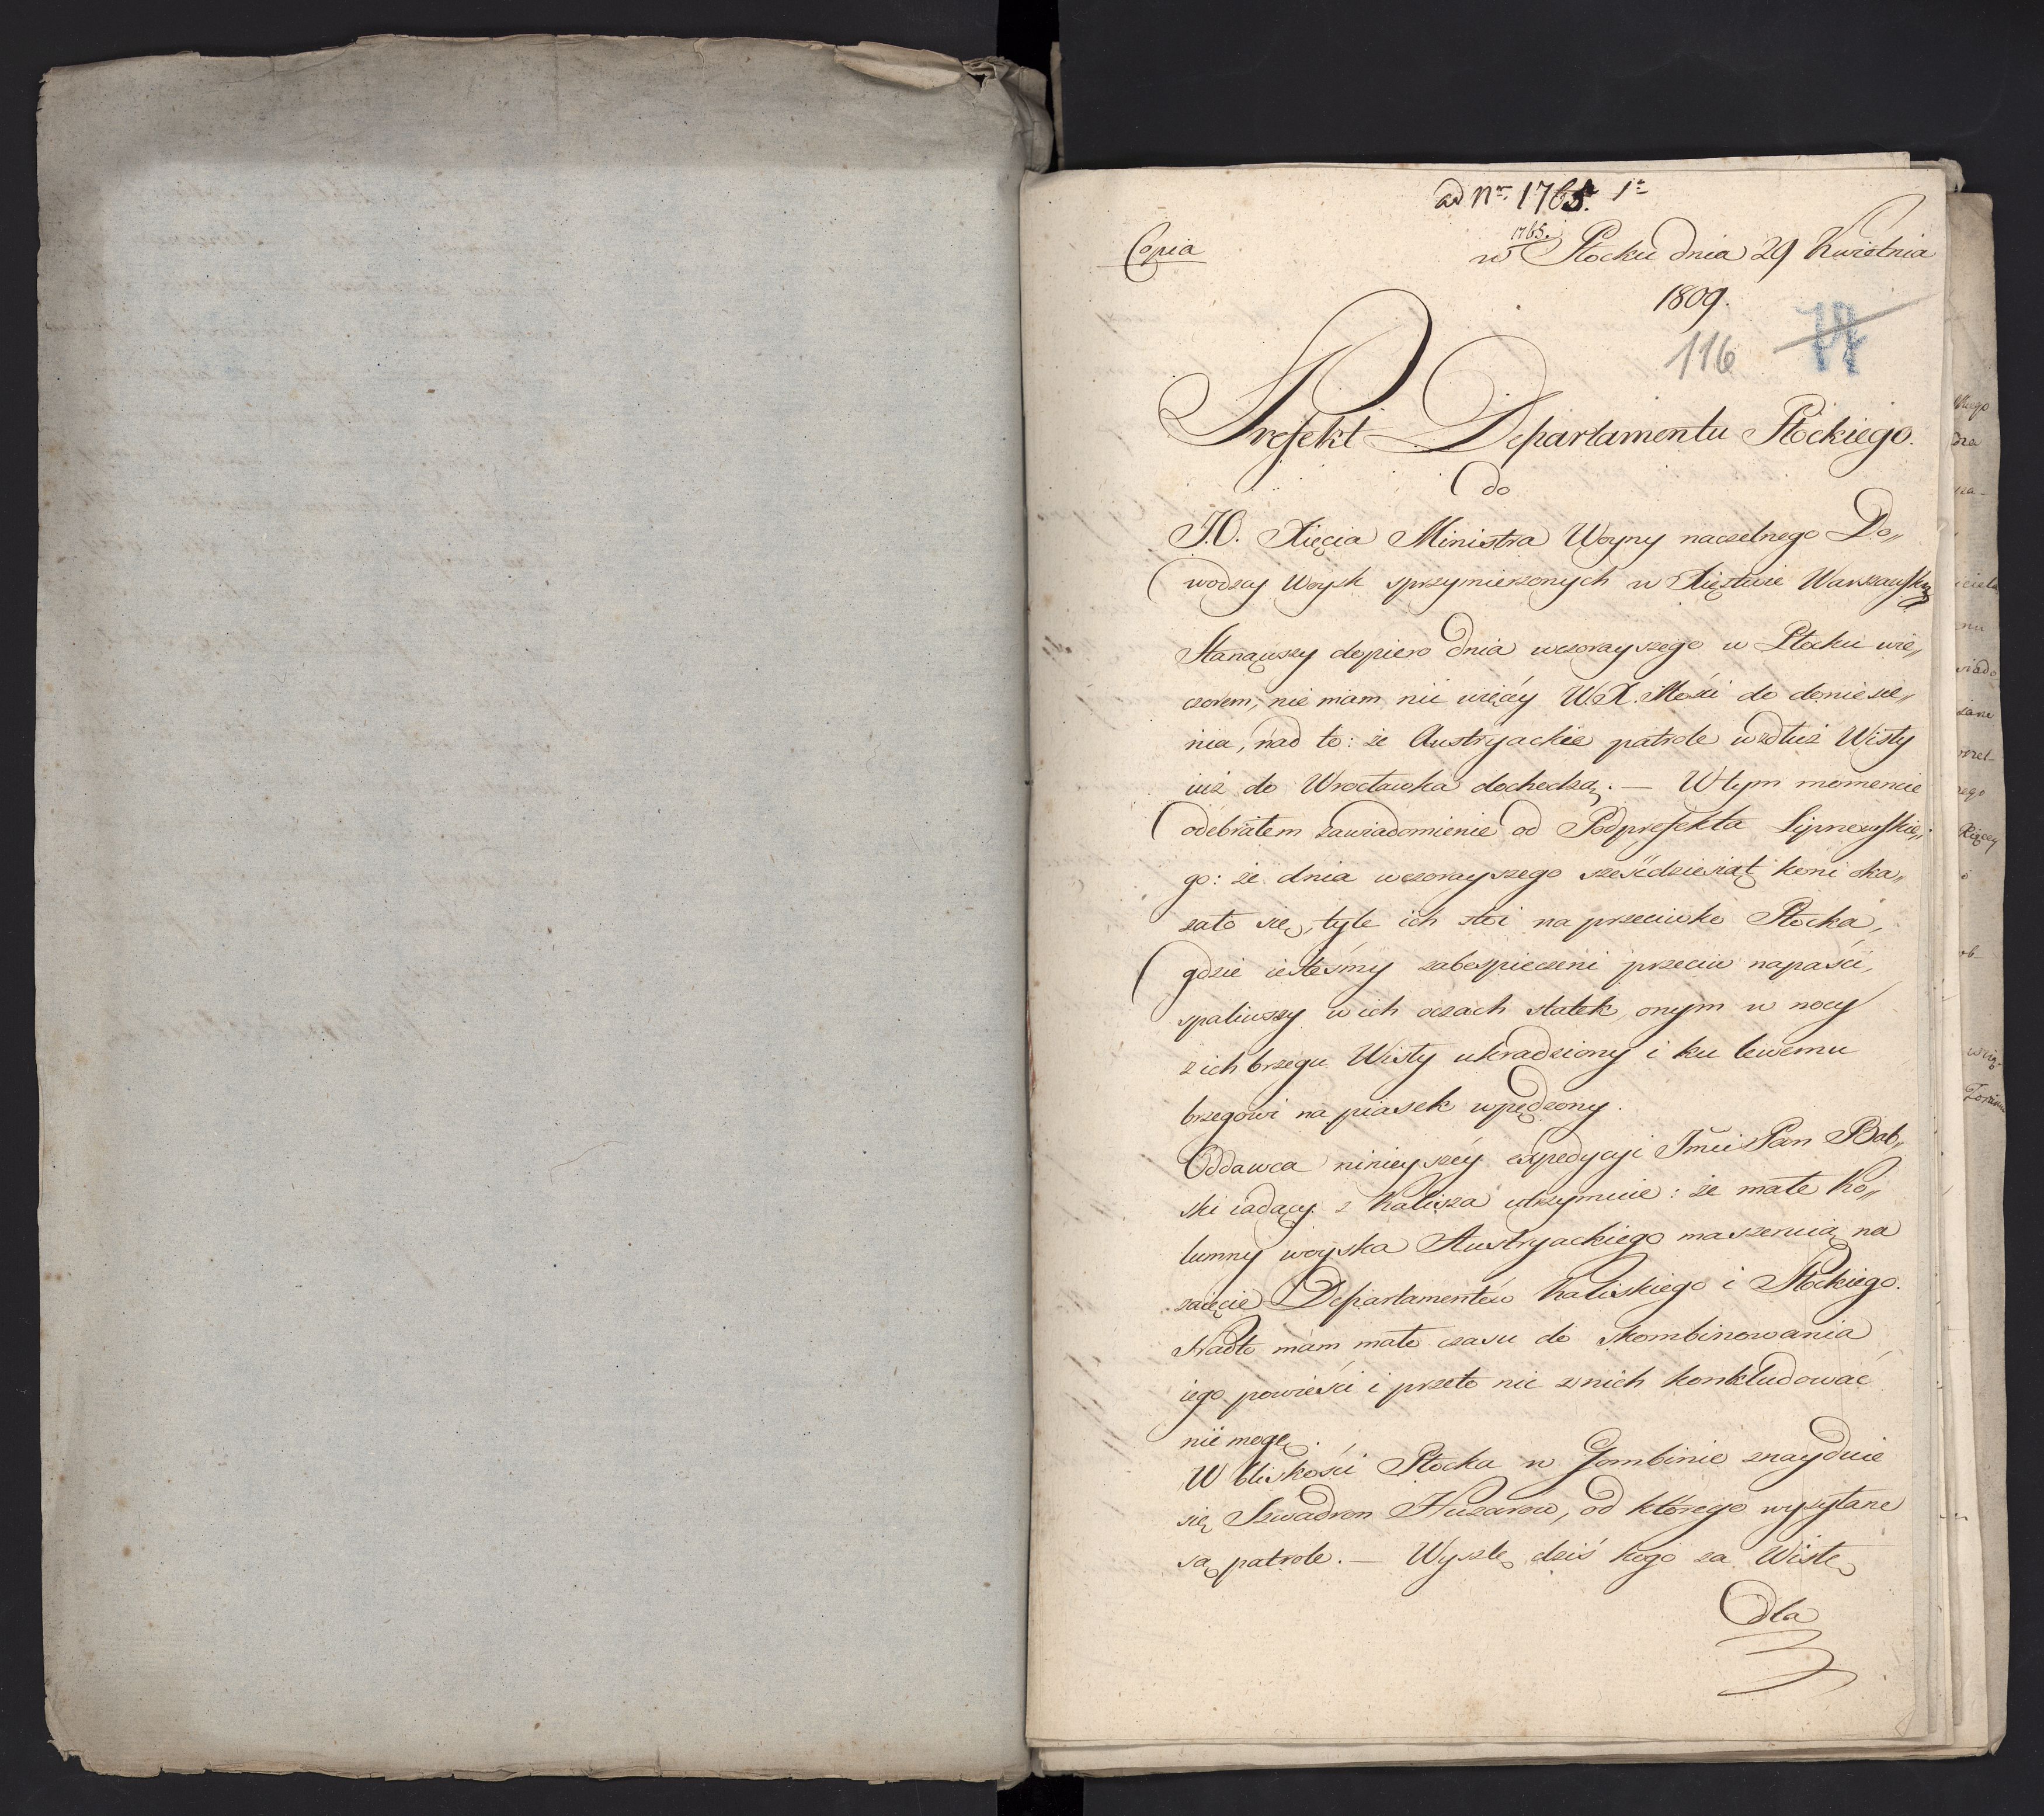 ad Nr. 1765. 1.
Copia
1765.
w Płocku dnia 29 Kwietnia
1809.
116 77
Prefekt Departamentu Płockiego.
do
J.O. Xięcia Ministra Woyny naczelnego Do„
wodzcy Woysk sprzymierzonych w Xięstwie Warszawskim
Stanąwszy dopiero dnia wczorayszego w Płocku wie„
czorem, nie mam nic więcy W.X. Mości do doniesie„
nia, nad to: że Austryackie patrole wzdłuż Wisły
iuż do Wrocławka dochodzą. — W tym momencie
odebrałem zawiadomienie od Podprefekta Lipnowskie„
go: że dnia wczorayszego sześćdziesiąt koni oka„
zało się, tyle ich stoi na przeciwko Płocka,
gdzie iesteśmy zabezpieczeni przeciw napaści,
spaliwszy w ich oczach statek, onym w nocy
z ich brzegu Wisły ukradziony i ku lewemu
brzegowi na piasek wpędzony.
Oddawca ninieyszéy expedycji Jmci Pan Bab„
ski iadący z Kalisza utrzymuie: że małe Ko„
lumny woyska Austryackiego maszeruią na
zaięcie Departamentów Kaliskiego i Płockiego.
Nadto mam mało czasu do skombinowania
iego powieści i przeto nic z nich konkludować
nie mogę.
W bliskości Płocka w Gombinie znayduie
się Szwadron Huzarow, od którego wysyłane
są patrole. — Wyszlę dziś kogo za Wisłę
dla